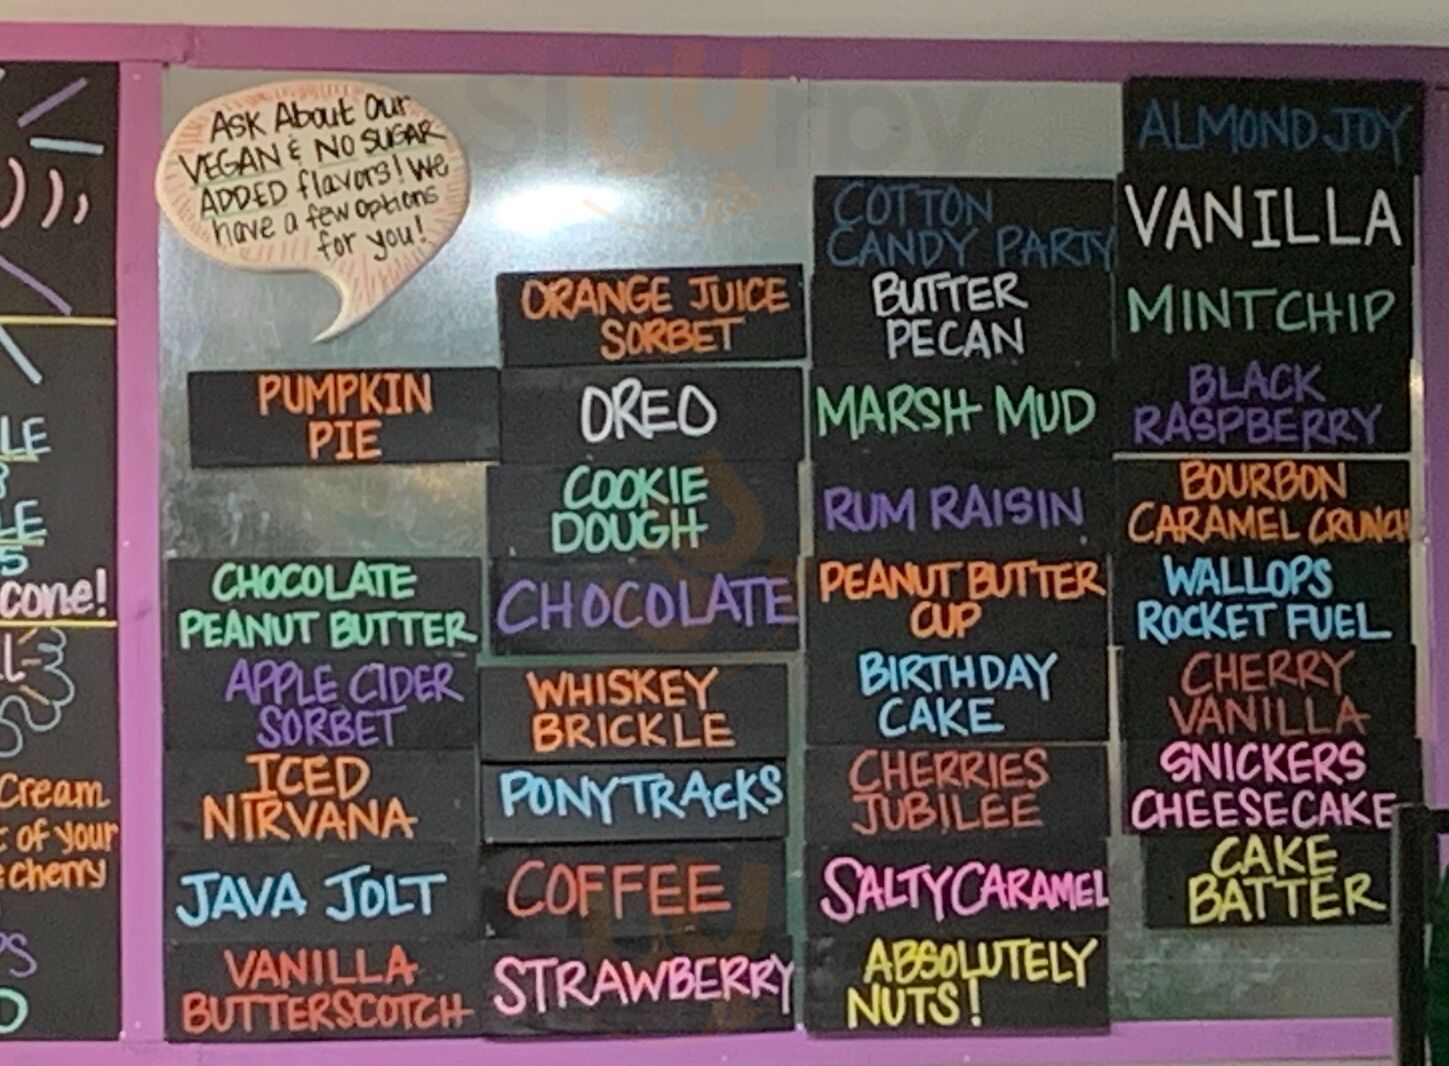 Ask About Our
VEGAN & NO SUGAR
ADDED flavors! We
have a few options
for you!
PUMPKIN
PIE
CHOCOLATE
PEANUT BUTTER
APPLE CIDER
SORBET
ICED
NIRVANA
JAVA JOLT
VANILLA
BUTTERSCOTCH
ORANGE JUICE
SORBET
OREO
COOKIE
DOUGH
CHOCOLATE
WHISKEY
BRICKLE
PONYTRACKS
COFFEE
STRAWBERRY
COTTON
CANDY PARTY
BUTTER
PECAN
MARSH MUD
RUM RAISIN
PEANUT BUTTER
CUP
BIRTHDAY
CAKE
CHERRIES
JUBILEE
SALTY CARAMEL
ABSOLUTELY
NUTS!
ALMOND JOY
VANILLA
MINT CHIP
BLACK
RASPBERRY
BOURBON
CARAMEL CRUNCH
WALLOPS
ROCKET FUEL
CHERRY
VANILLA
SNICKERS
CHEESECAKE
CAKE
BATTER
cone!
Cream
of your
cherry